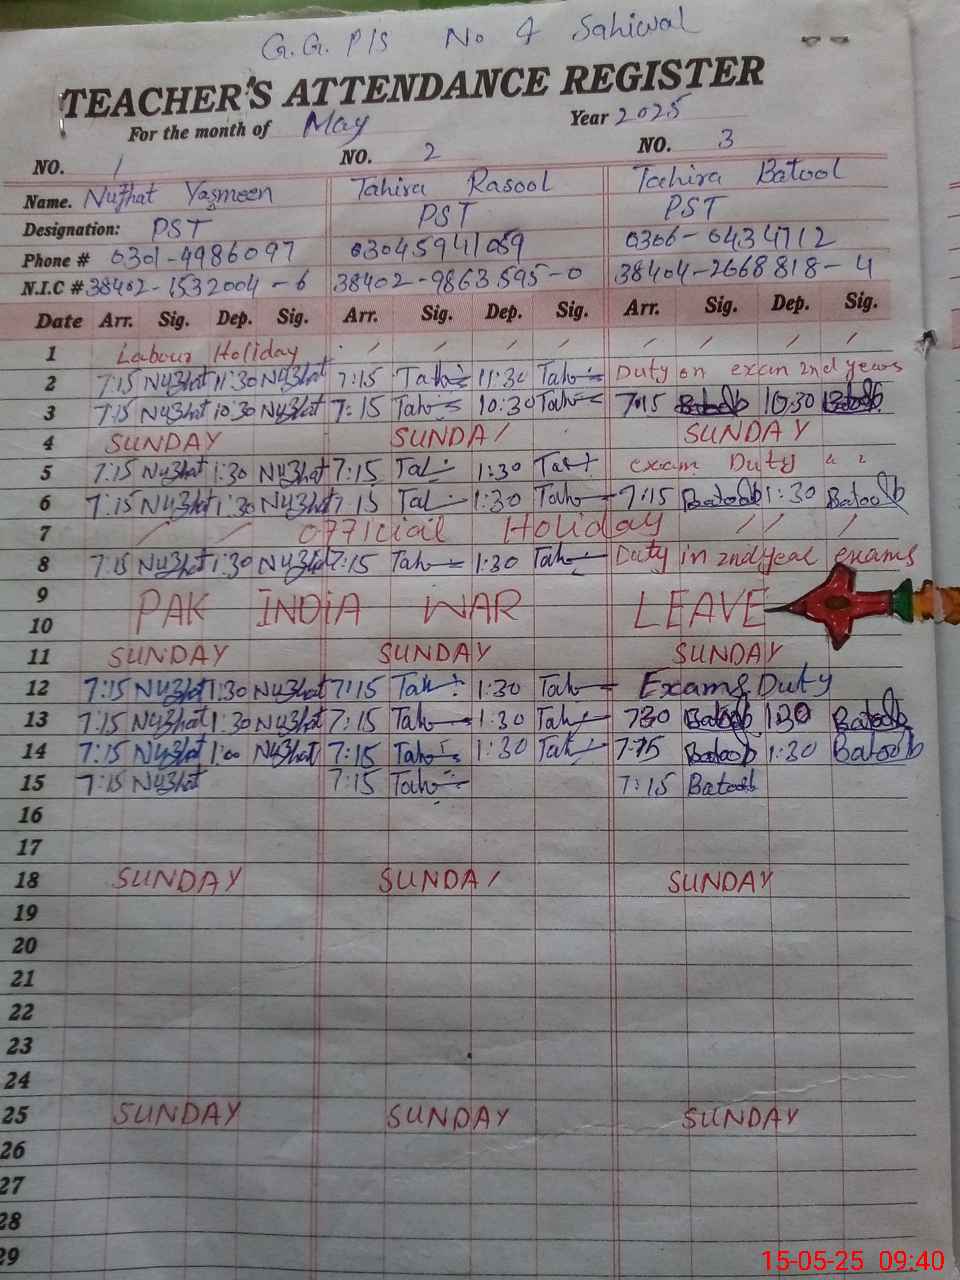 G.G. P/S No 4 Sahiwal
TEACHER'S ATTENDANCE REGISTER
For the month of May Year 2025
NO. 1 NO. 2 NO. 3
Name. Nuzhat Yasmeen Tahira Rasool Tahira Batool
Designation: PST PST PST
Phone # 0301-4986097 03045941059 0306-6434712
N.I.C # 38402-1532004-6 38402-9863595-0 38404-2668818-4
Date Arr. Sig. Dep. Sig. Arr. Sig. Dep. Sig. Arr. Sig. Dep. Sig.
1 Labour Holiday
2 7:15 Nuzhat 11:30 Nuzhat 7:15 Tah 11:30 Tah Duty on exam 2nd years
3 7:15 Nuzhat 10:30 Nuzhat 7:15 Tah 10:30 Tah 7:15 Batool 10:30 Batool
4 SUNDAY SUNDAY SUNDAY
5 7:15 Nuzhat 1:30 Nuzhat 7:15 Tah 1:30 Tah exam Duty
6 7:15 Nuzhat 1:30 Nuzhat 7:15 Tah 1:30 Tah 7:15 Batool 1:30 Batool
7 Official Holiday
8 7:15 Nuzhat 1:30 Nuzhat 7:15 Tah 1:30 Tah Duty in 2nd year exams
9
10 PAK INDIA WAR LEAVE
11 SUNDAY SUNDAY SUNDAY
12 7:15 Nuzhat 1:30 Nuzhat 7:15 Tah 1:30 Tah Exams Duty
13 7:15 Nuzhat 1:30 Nuzhat 7:15 Tah 1:30 Tah 7:30 Batool 1:30 Batool
14 7:15 Nuzhat 1:00 Nuzhat 7:15 Tah 1:30 Tah 7:15 Batool 1:30 Batool
15 7:15 Nuzhat 7:15 Tah 7:15 Batool
16
17
18 SUNDAY SUNDAY SUNDAY
19
20
21
22
23
24
25 SUNDAY SUNDAY SUNDAY
26
27
28
29
15-05-25 09:40